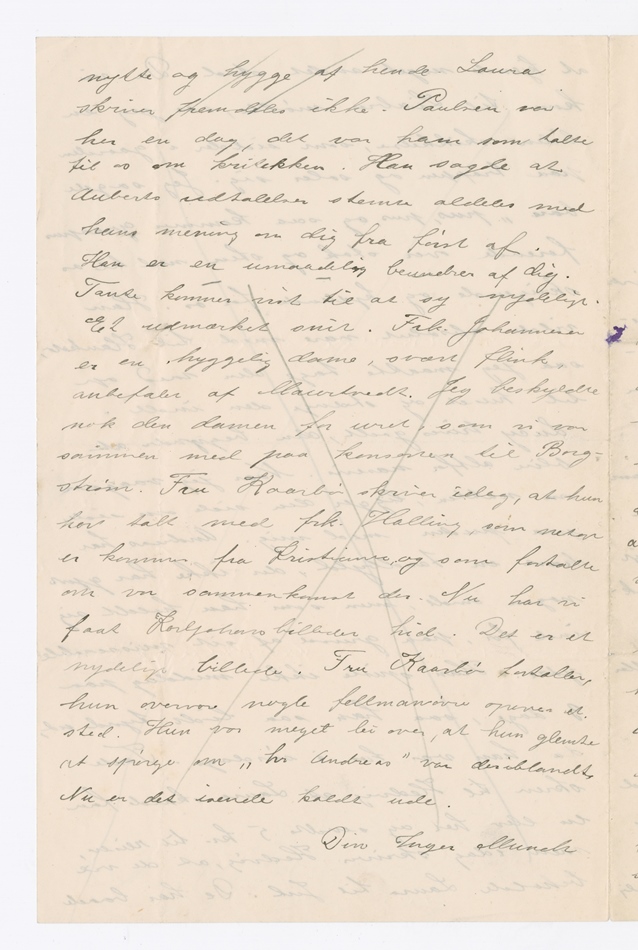 nytte og hygge af hende Laura
skriver fremdeles ikke. Paulsen var
her en dag, det var ham som talte
til os om kritikken. Han sagde at
Auberts udtalelser stemte aldeles med
hans mening om dig fra først af.
Han er en umaadelig beundrer af dig.
Tante kommer vist til at sy nydeligt.
Et udmærket snit. Frk. Johannesen
er en hyggelig dame, svært flink
anbefales af Maurtvedt. Jeg beskyldte
nok den damen for uret, som vi var
sammen med paa konserten til Borg-
strøm. Fru Kaarbø skriver idag, at hun
har talt med frk. Halling, som netop
er kommen fra Kristiania, og som fortalte
om vor sammenkomst der. Nu har vi
faat Karljohans billedet hid. Det er et
nydeligt billede. Fru Kaarbø fortaller,
hun overvar nogle feltmanøvre opover et
sted. Hun var meget lei over, at hun glemte
at spørge om „hr Andreas" var deriblandt.
Nu er det isende koldt ude.
Din Inger Munch